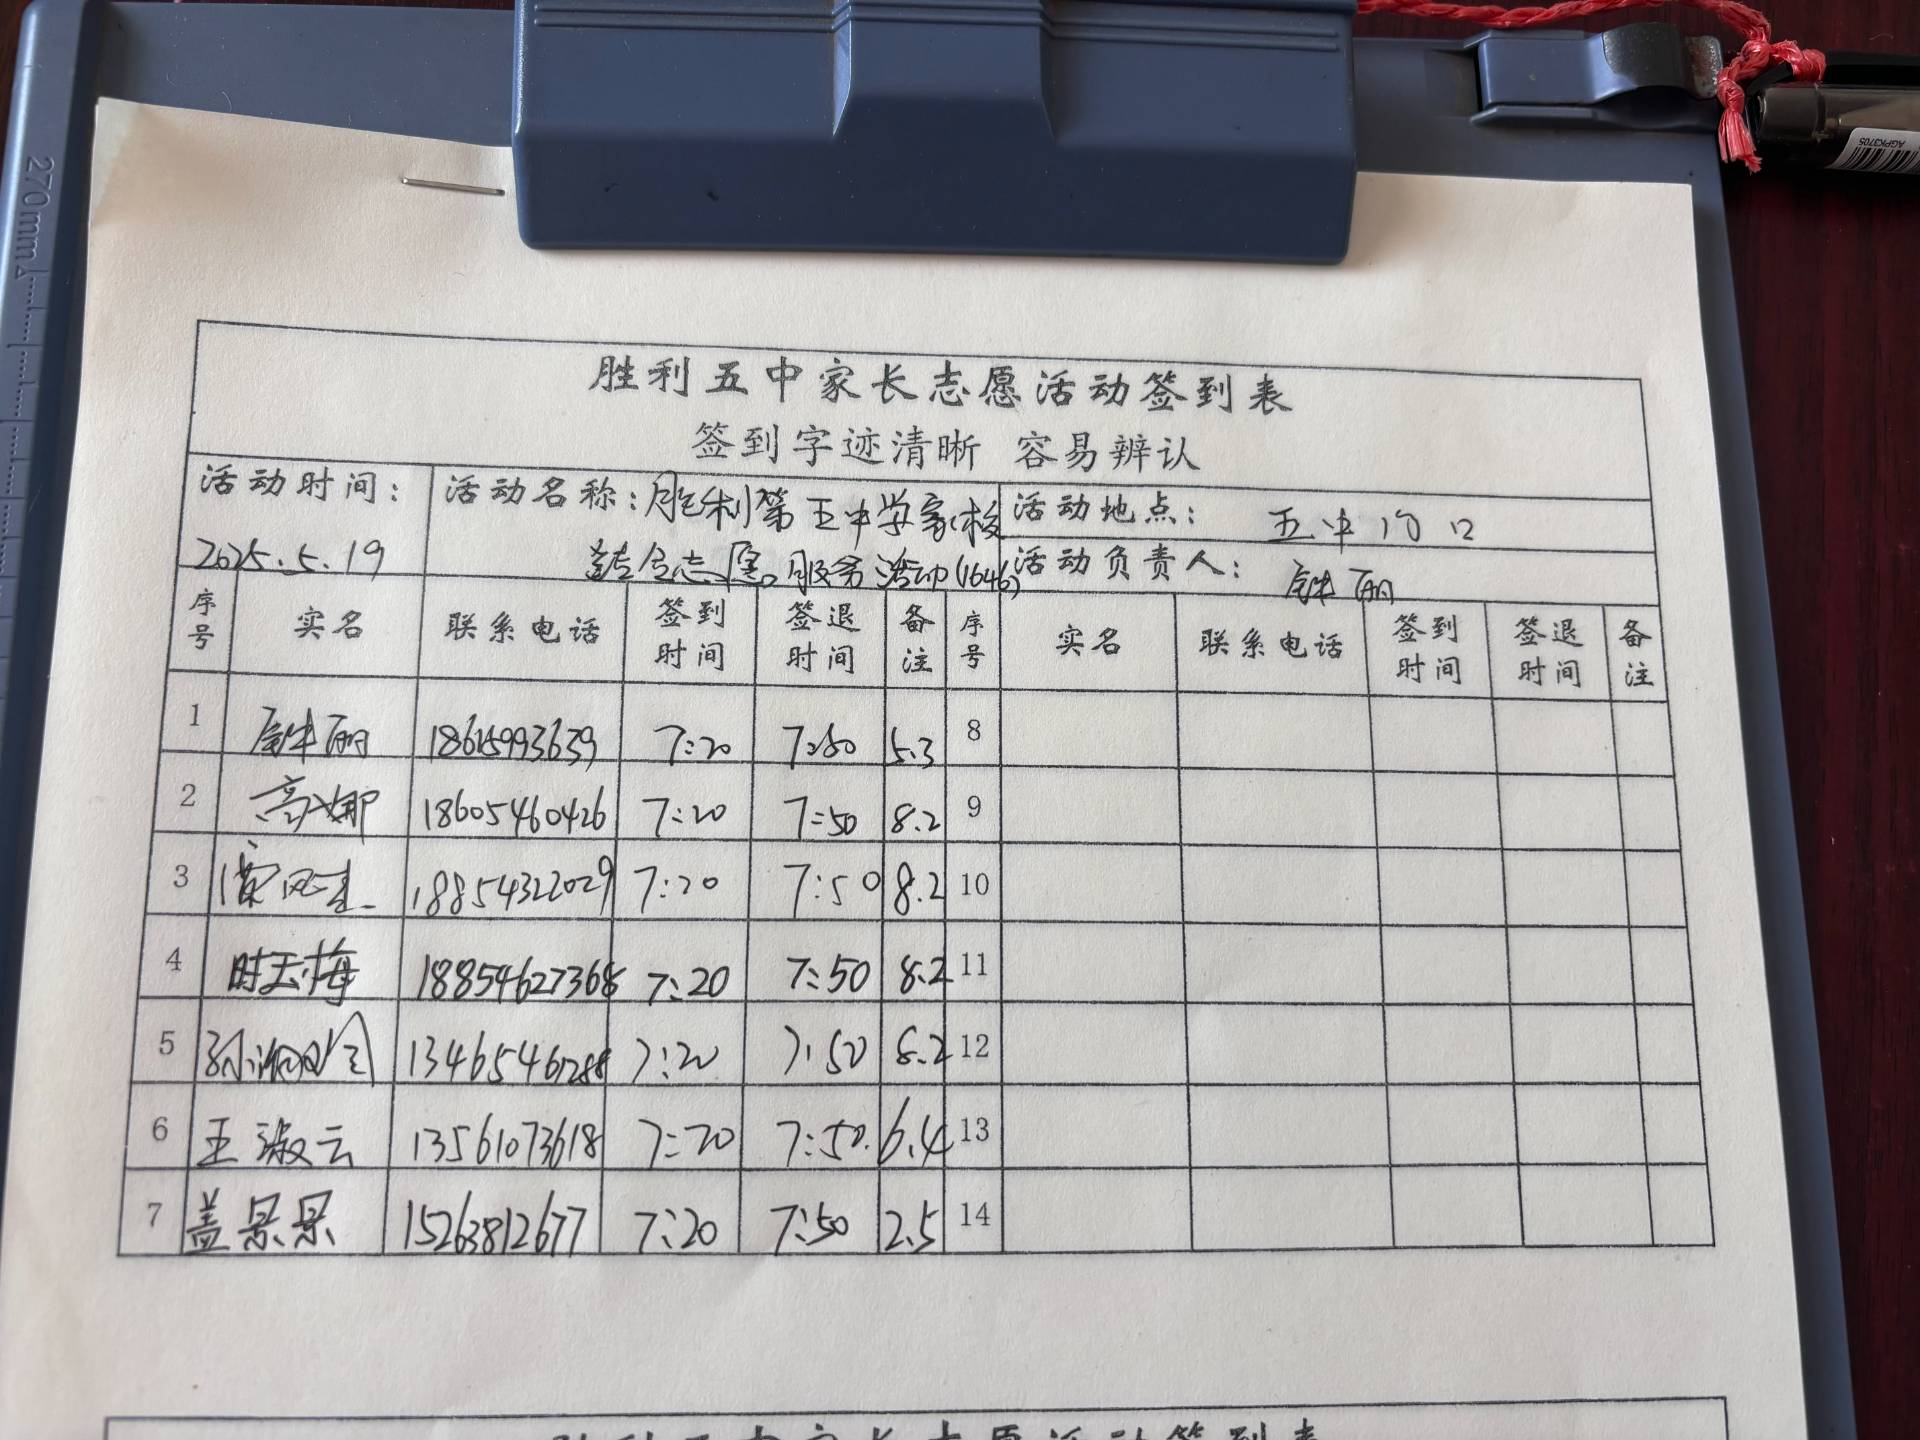 270mm
AGPK3705
胜利五中家长志愿活动签到表
签到字迹清晰 容易辨认
活动时间: 活动名称:胜利第五中学家校 活动地点: 五中门口
2025.5.19 志愿服务活动(1646) 活动负责人: 丽
序号 实名 联系电话 签到时间 签退时间 备注 序号 实名 联系电话 签到时间 签退时间 备注
1 丽 18615993639 7:20 7:50 5.3 8
2 高娜 18605460426 7:20 7:50 8.2 9
3 18854322029 7:20 7:50 8.2 10
4 时玉梅 18854627368 7:20 7:50 8.2 11
5 孙 13465461288 7:20 7:50 8.2 12
6 王淑云 13561073618 7:20 7:50 6.4 13
7 盖景景 15263812677 7:20 7:50 2.5 14
胜利五中家长志愿活动签到表